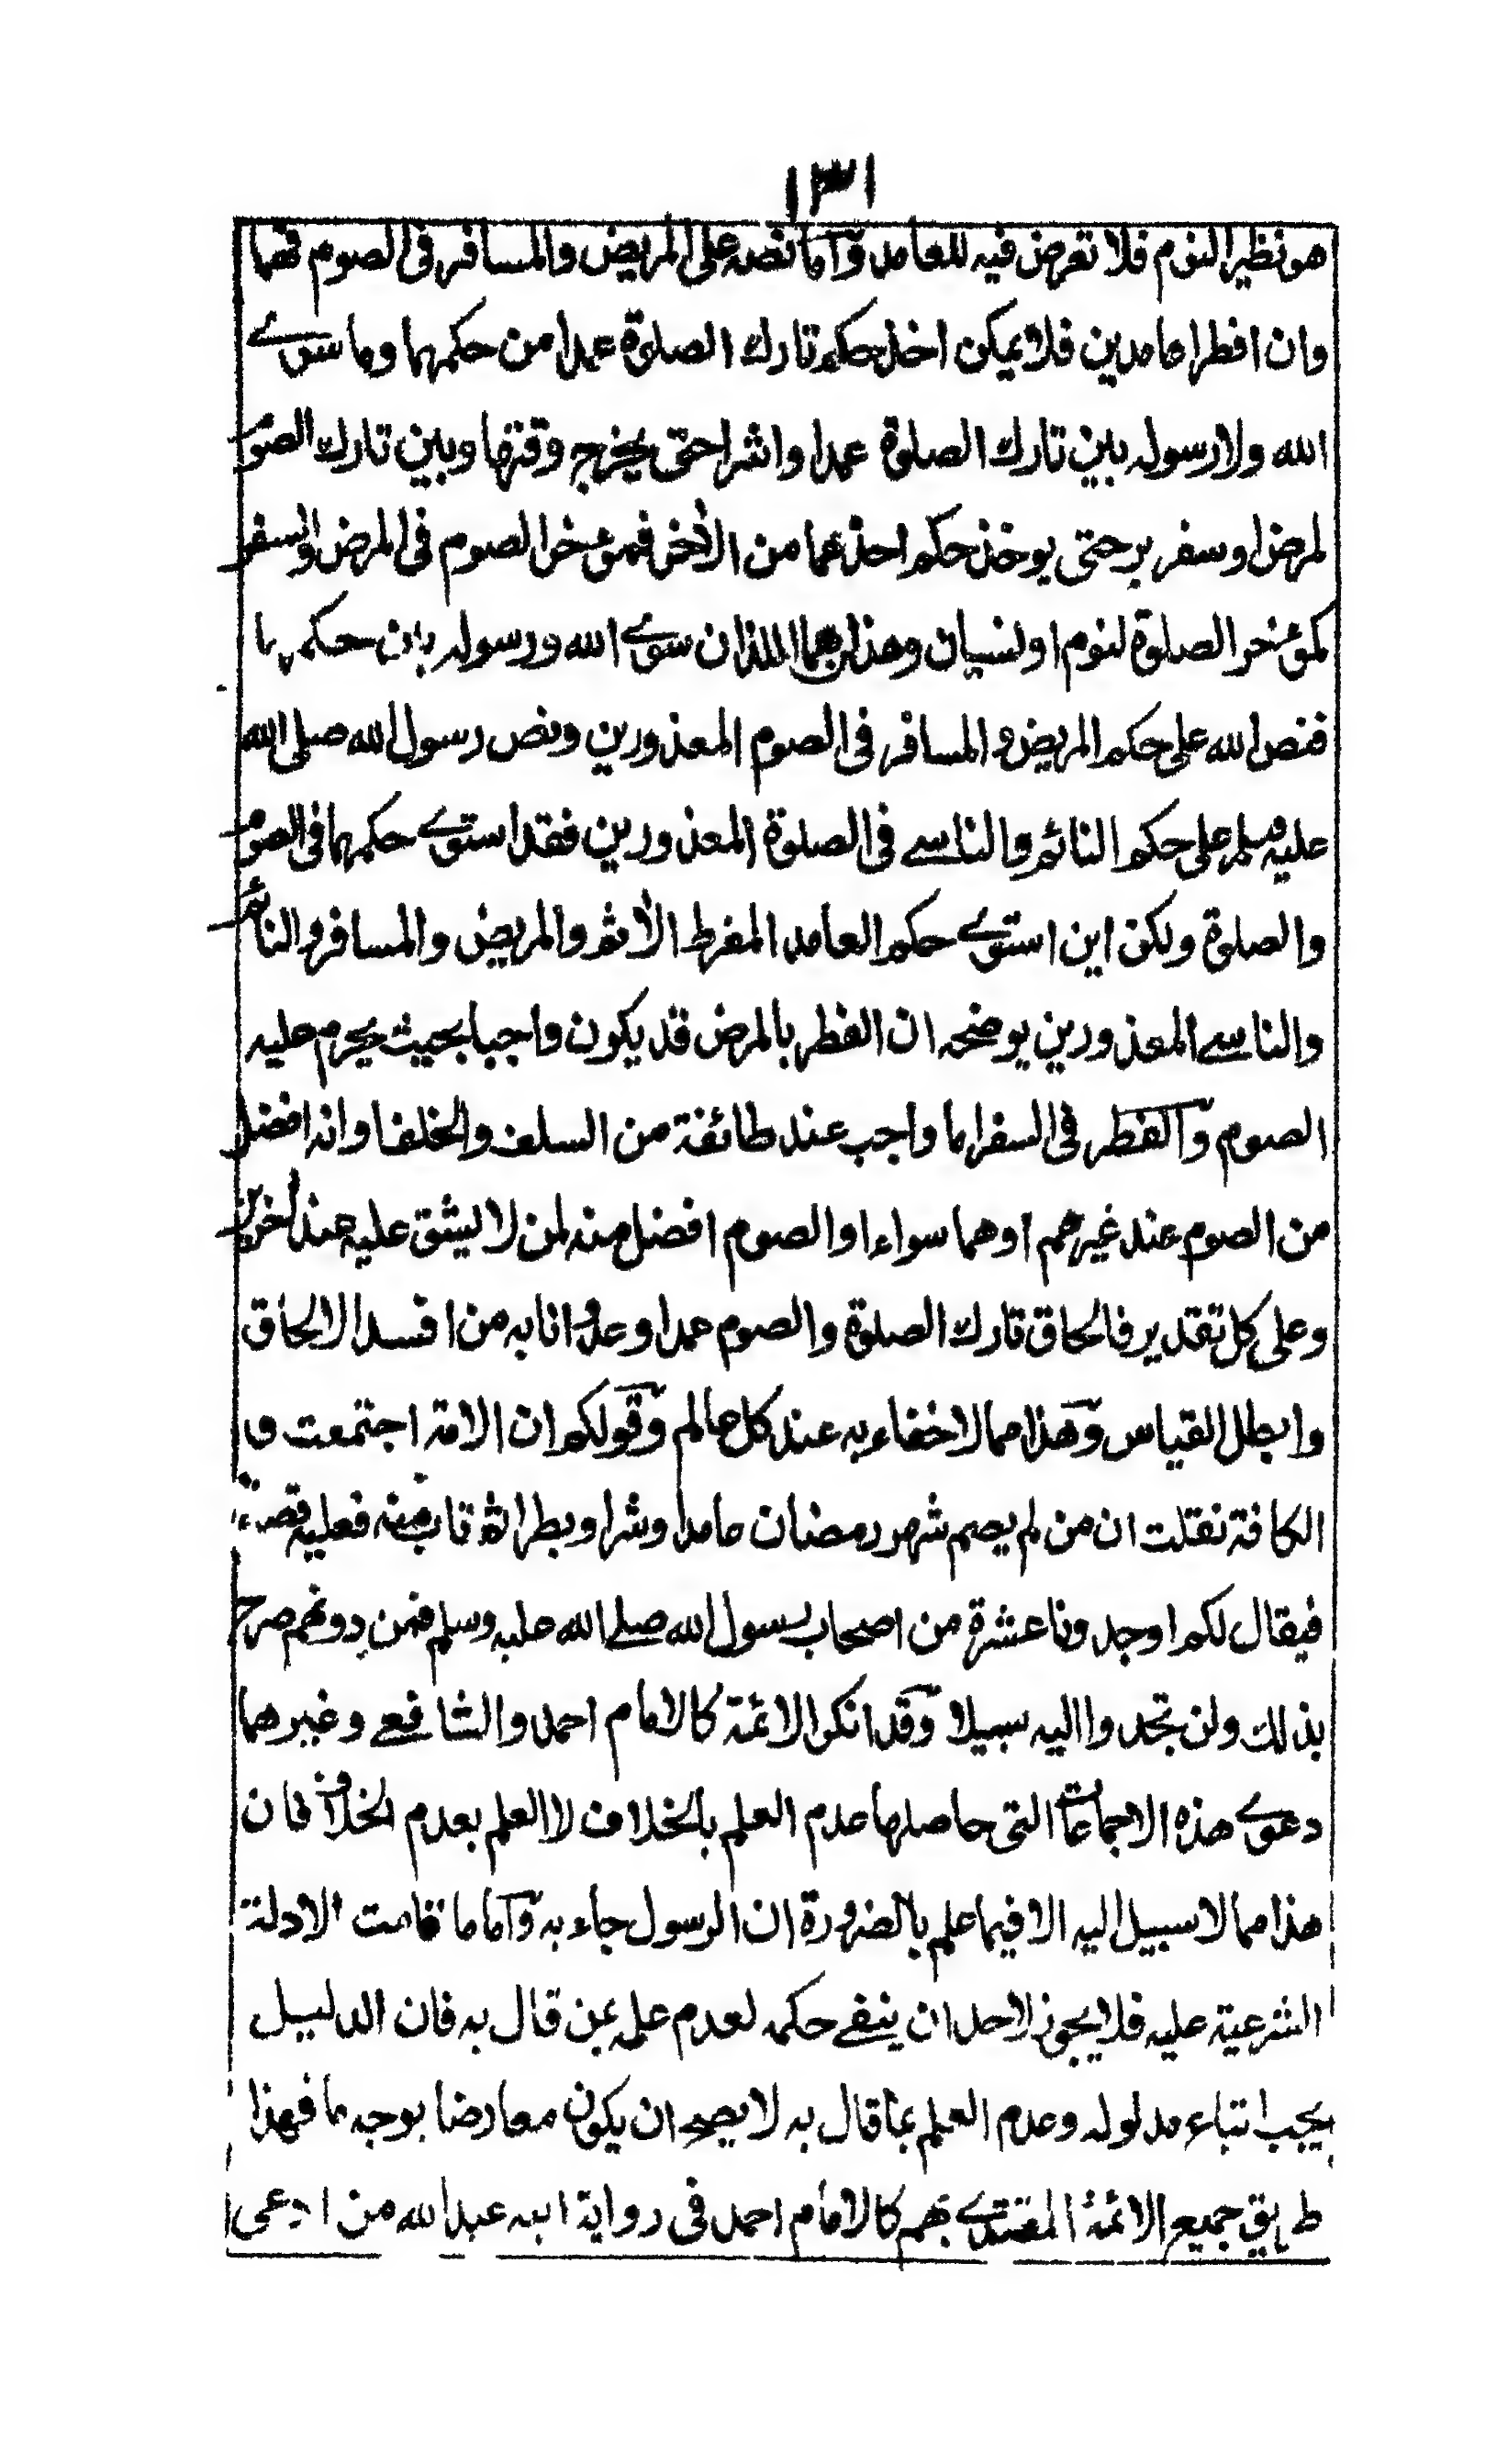 ١٣١
هو نظير النوم فلا تعرض فيه للعامد وآما نصه على المريض والمسافر فى الصوم فهما
وان افطرا عامدين فلا يمكن اخذ حكم تارك الصلوة عمدا من حكمهما وما سوے
الله ولا رسوله بين تارك الصلوة عمدا واشرا حتى يخرج وقتها وبين تارك الصوم
لمرض او سفر حتى يوخذ حكم احدهما من الأخر فمؤخر الصوم فى المرض والسفر
كمؤخر الصلوة لنوم او نسيان وهذان هما اللذان سوے الله ورسوله بين حكمهما
فنص الله على حكم المريض والمسافر فى الصوم المعذورين ونص رسول الله صلى الله
عليه وسلم على حكم النائم والناسے فى الصلوة المعذورين فقد استوے حكمهما فى الصوم
والصلوة ولكن اين استوے حكم العامد المفرط الأثم والمريض والمسافر والنائم
والناسے المعذورين يوضحه ان الفطر بالمرض قد يكون واجبا بحيث يحرم عليه
الصوم وآلفطر فى السفر اما واجب عند طائفة من السلف والخلف او انه افضل
من الصوم عند غيرهم او هما سواء او الصوم افضل منه لمن لا يشق عليه عند أخرين
وعلى كل تقدير فالحاق تارك الصلوة والصوم عمدا وعدوانا به من افسد الالحاق
وابطل القياس وهذا مما لا خفاء به عند كل عالم وقولكم ان الامة اجتمعت و
الكافة نقلت ان من لم يصم شهر رمضان عامدا وشرا وبطرا ثم تاب منه فعليه قضاءه
فيقال لكم اوجدونا عشرة من اصحاب رسول الله صلے الله عليه وسلم فمن دونهم صرح
بذلك ولن تجدوا اليه سبيلا وقد انكر الائمة كالامام احمد والشافعے وغيرهما
دعوے هذه الاجماعات التى حاصلها عدم العلم بالخلاف لا العلم بعدم الخلاف فان
هذا مما لا سبيل اليه الا فيما علم بالضرورة ان الرسول جاء به وآما ما قامت الادلة
الشرعية عليه فلا يجوز لاحد ان ينفے حكمه لعدم علمه بمن قال به فان الدليل
يجب اتباع مدلوله وعدم العلم بمن قال به لا يصح ان يكون معارضا بوجه ما فهذا
طريق جميع الائمة المقتدے بهم كالامام احمد فى رواية ابنه عبد الله من ادعى